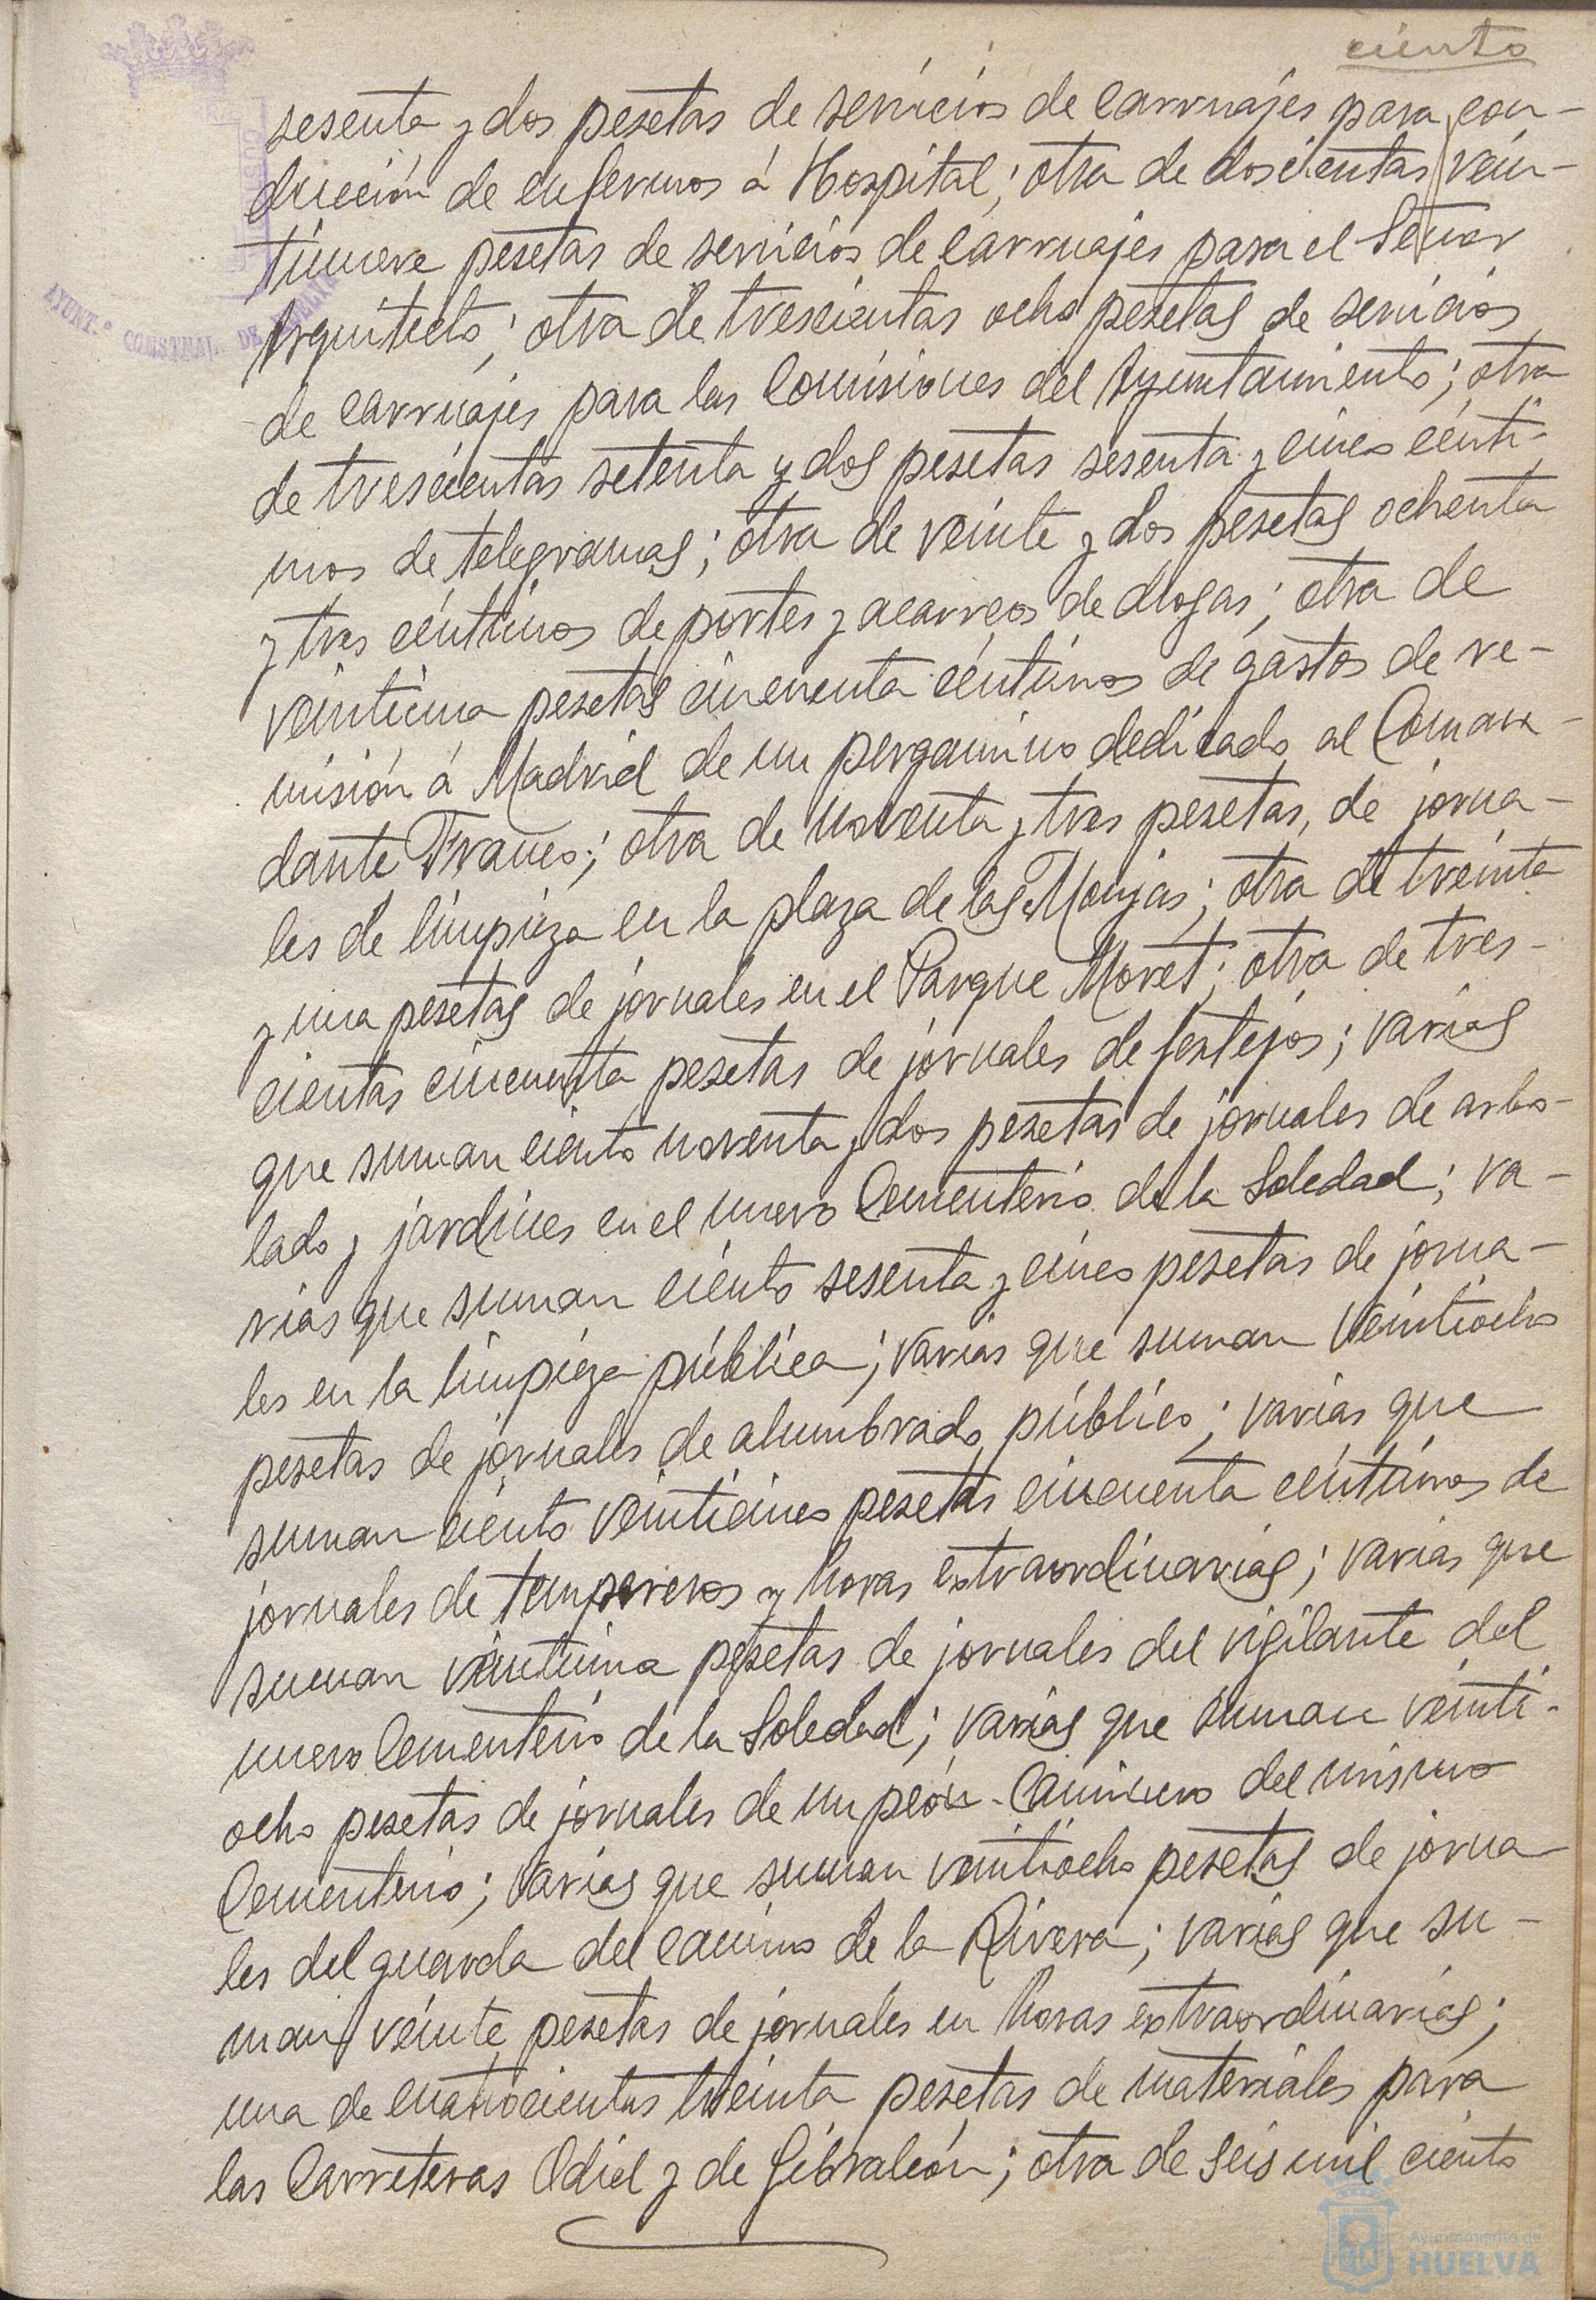 ciento
sesenta y dos pesetas de servicios de carruajes para con-
ducción de enfermos á Hospital; otra de doscientas vein-
tinueve pesetas de servicios de carruajes para el Señor
Arquitecto; otra de trescientas ocho pesetas de servicios
de carruajes para las Comisiones del Ayuntamiento; otra
de trescientas setenta y dos pesetas sesenta y cinco cénti-
mos de telegramas; otra de veinte y dos pesetas ochenta
y tres céntimos de portes y acarreos de drogas; otra de
veintiuna pesetas cincuenta céntimos de gastos de re-
misión á Madrid de un pergamino dedicado al Coman-
dante Franco; otra de noventa y tres pesetas, de jorna-
les de limpieza en la plaza de las Monjas; otra de treinta
y una pesetas de jornales en el Parque Moret; otra de tres-
cientas cincuenta pesetas de jornales de festejos; varias
que suman ciento noventa y dos pesetas de jornales de arbo-
lado y jardines en el nuevo Cementerio de la Soledad; va-
rias que suman ciento sesenta y cinco pesetas de jorna-
les en la limpieza pública; varias que suman veintiocho
pesetas de jornales de alumbrado público; varias que
suman ciento veinticinco pesetas cincuenta céntimos de
jornales de temporeros y horas extraordinarias; varias que
suman veintiuna pesetas de jornales del vigilante del
nuevo Cementerio de la Soledad; varias que suman veinti-
ocho pesetas de jornales de un peón-Caminero del mismo
Cementerio; varias que suman veintiocho pesetas de jorna-
les del guarda del camino de la Rivera; varias que su-
man veinte pesetas de jornales en horas extraordinarias;
una de cuatrocientas treinta pesetas de materiales para
las Carreteras Odiel y de Gibraleón; otra de seis mil ciento
AYUNT.º CONSTNAL. DE HUELVA
Ayuntamiento de
HUELVA